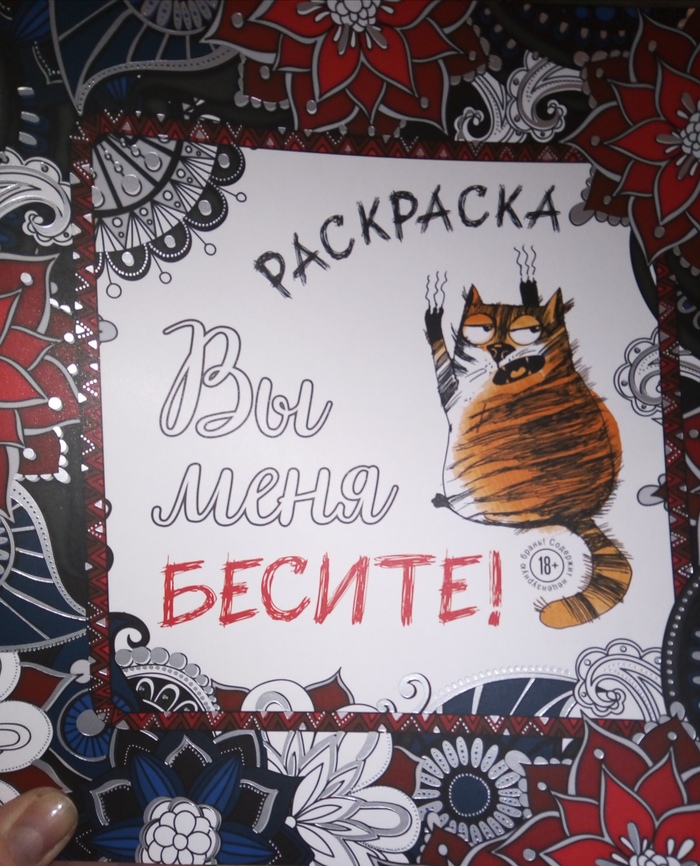 РАСКРАСКА
Вы
меня
БЕСИТЕ!
18+
Содержит нецензурную брань!